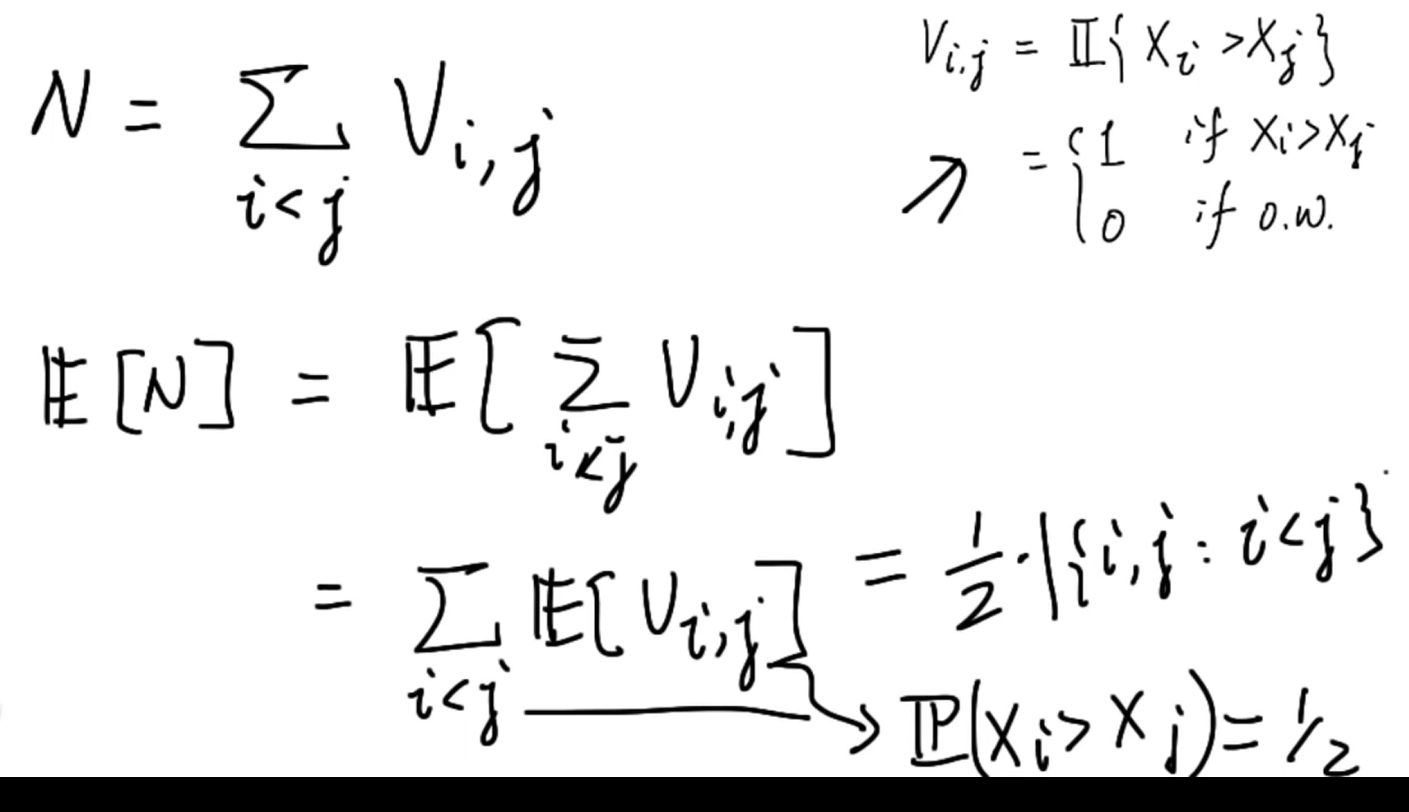 N = ∑_{i<j} V_{i,j}
V_{i,j} = 𝕀{ X_i > X_j }
= { 1 if X_i > X_j
0 if o.w.
𝔼[N] = 𝔼[ ∑_{i<j} V_{i,j} ]
= ∑_{i<j} 𝔼[V_{i,j}] = 1/2 · |{i,j : i<j}
→ ℙ(X_i > X_j) = 1/2